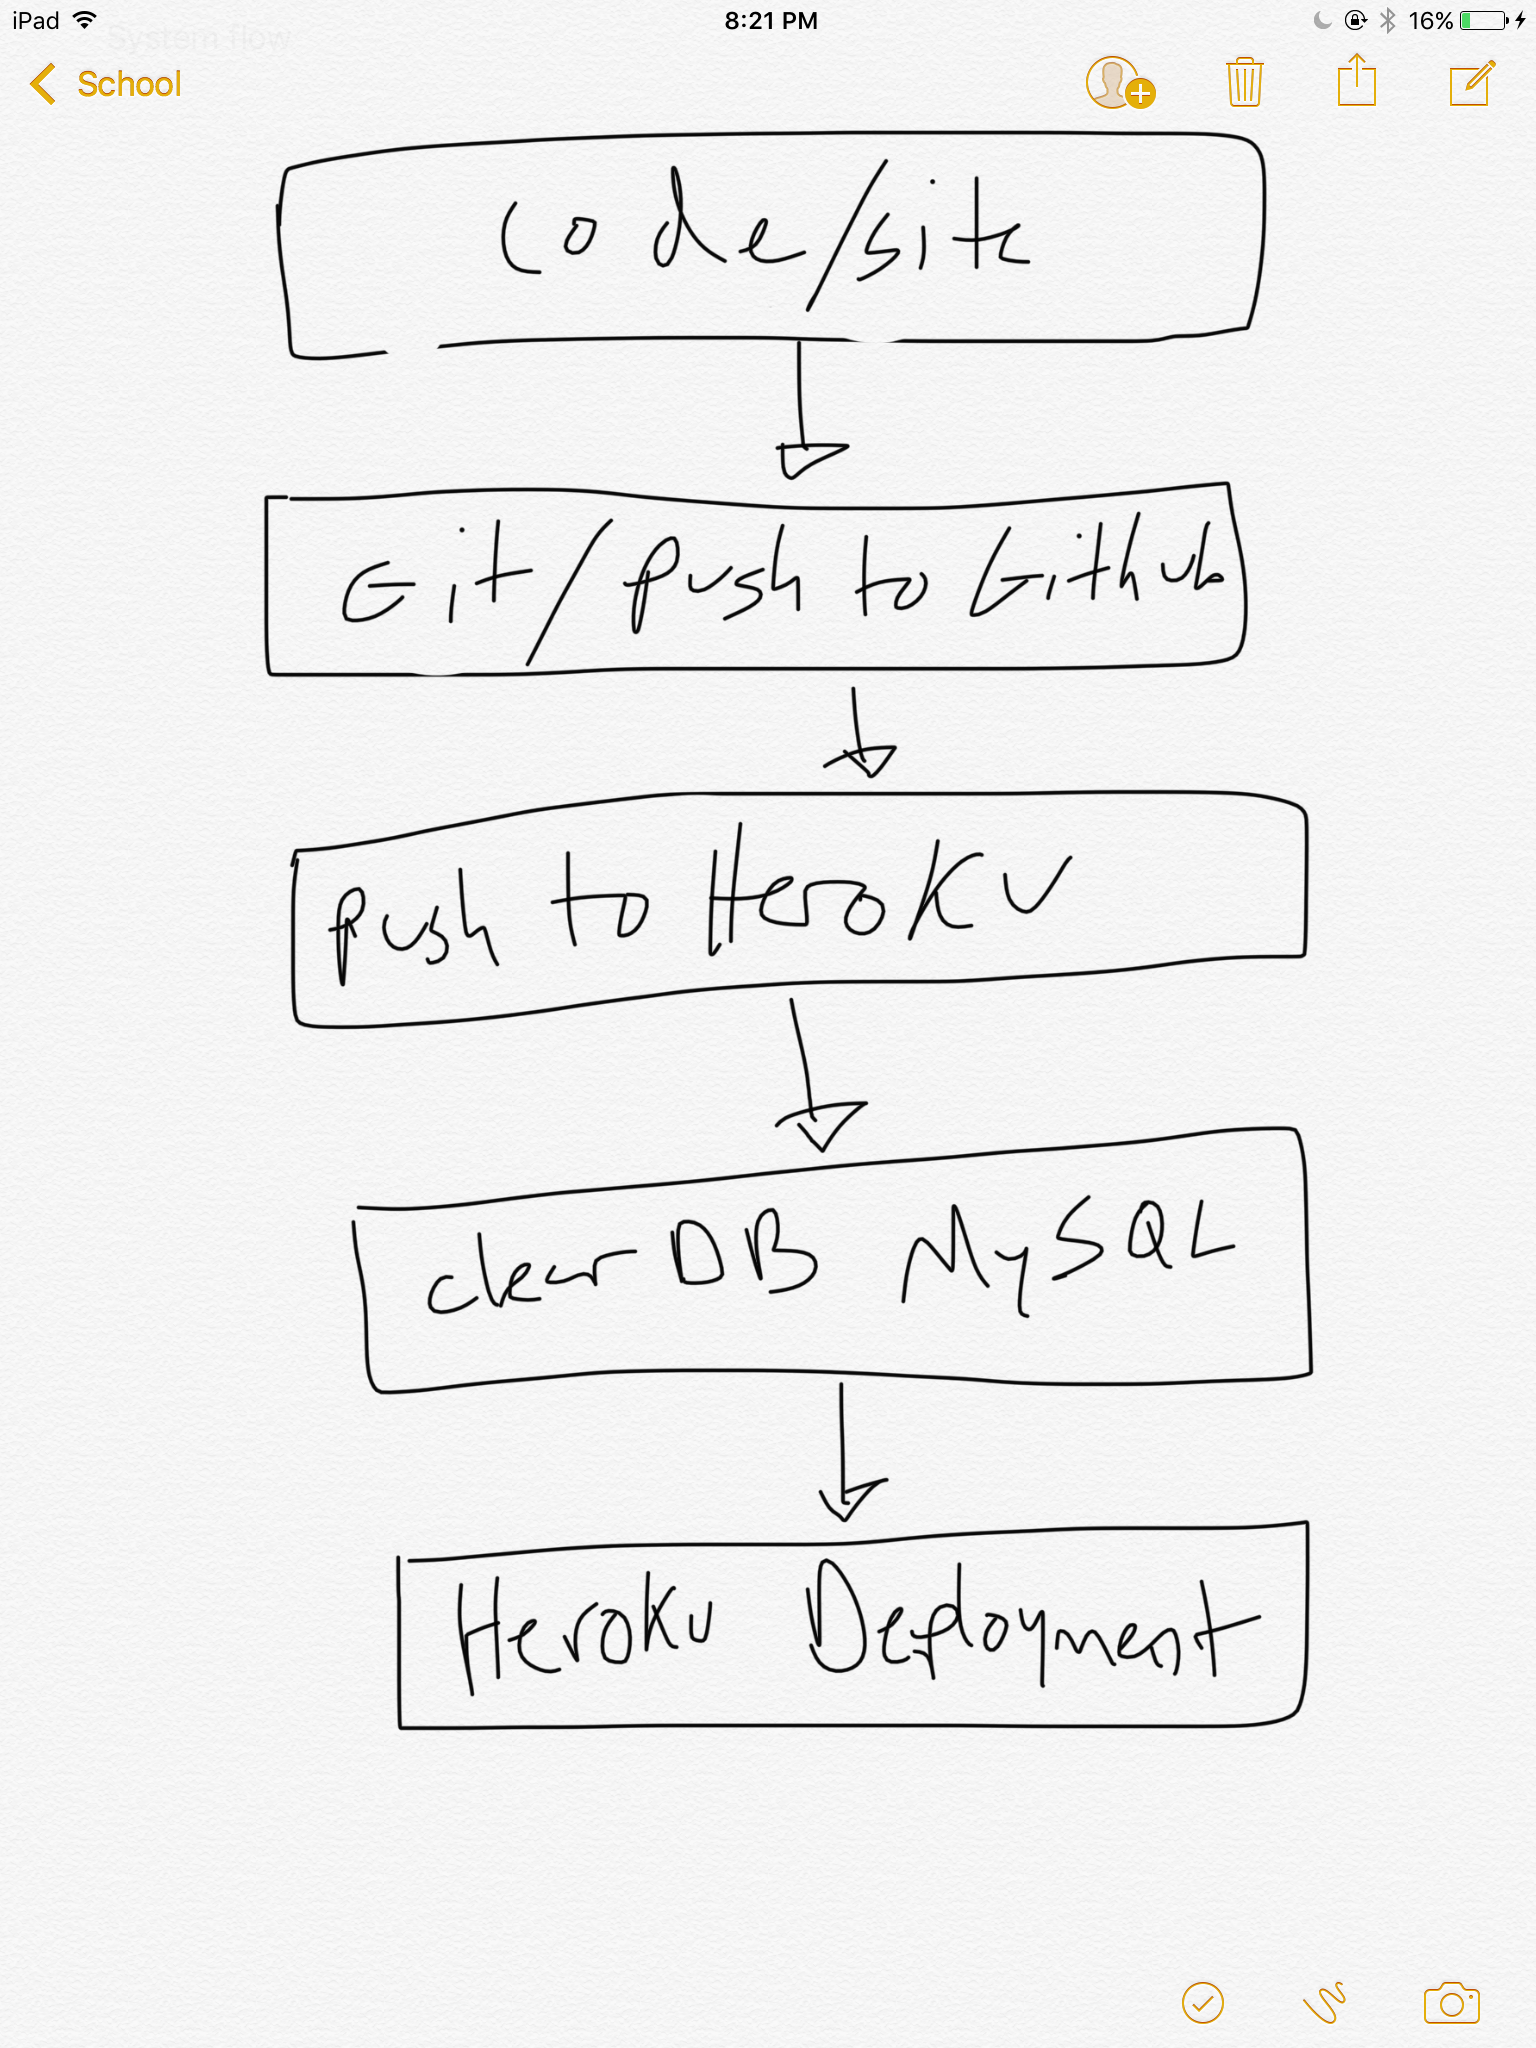 iPad 8:21 PM 16%
System flow
School
Code/site
Git/push to Github
push to Heroku
clearDB MySQL
Heroku Deployment